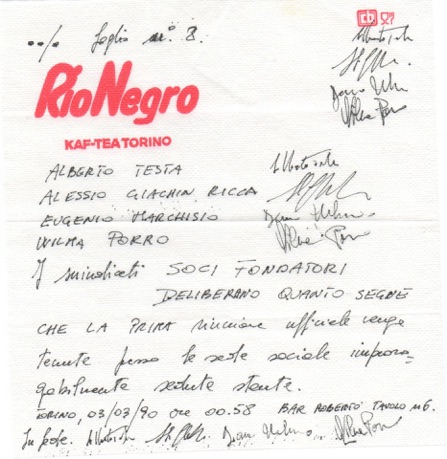 Foglio n°. 3.
RioNegro
KAF-TEA TORINO
ALBERTO TESTA
ALESSIO GIACHIN RICCA
EUGENIO MARCHISIO
WILMA PORRO
I suindicati SOCI FONDATORI
DELIBERANO QUANTO SEGUE
CHE LA PRIMA riunione ufficiale venga
tenuta presso la sede sociale improro-
gabilmente seduta stante.
TORINO, 03/03/90 ore 00.58 BAR ROBERTO TAVOLO n6.
In fede.